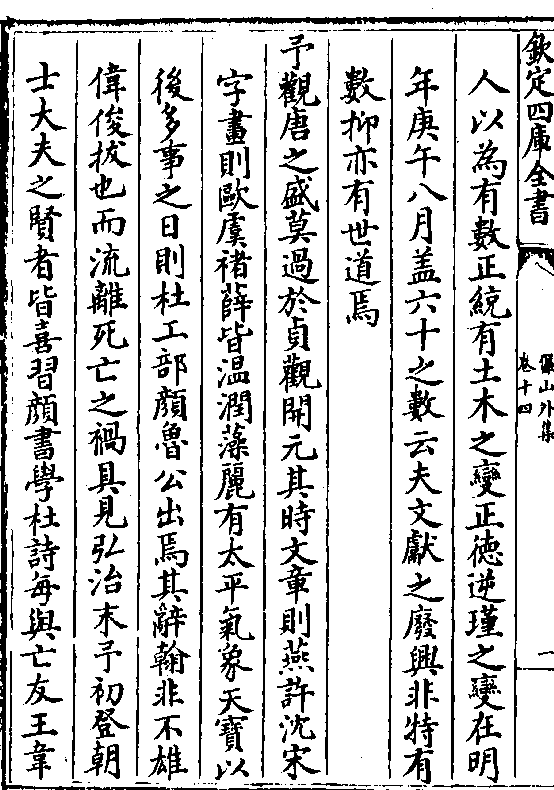 欽定四庫全書
儼山外集
卷十四
一
人以為有數正統有土木之變正德逆瑾之變在明
年庚午八月盖六十之數云夫文獻之廢興非特有
數抑亦有世道焉
予觀唐之盛莫過於貞觀開元其時文章則燕許沈宋
字畫則歐虞褚薛皆温潤藻麗有太平氣象天寶以
後多事之日則杜工部顔魯公出焉其辭翰非不雄
偉俊拔也而流離死亡之禍具見弘治末予初登朝
士大夫之賢者皆喜習顔書學杜詩每與亡友王韋